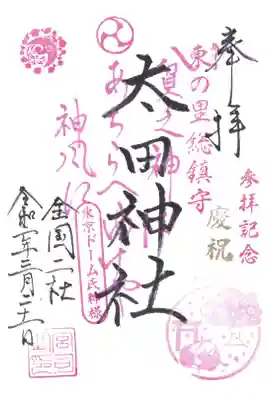 奉拝
東の里総鎮守
参拝記念
慶祝
太田神社
神風に
東京ドーム氏神様
全国二社
令和 年三月二十一日